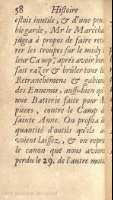 58 Histoire
estoit inutile, & d'une pen-
ble garde, Mr le Marécha
jugea à propos de faire ren-
trer les troupes sur le midy
leur Camp, après avoir
fait razer & brûler tous le
Retranchemens & gabions
des Ennemis, aussi-bien qu'
une Batterie faite pour
pieces, contre le Camp
sainte Anne. On profita
quantité d'outils qu'ils
voient laissez, & on repri
le canon que nous avions
perdu le 29. de l'autre mois